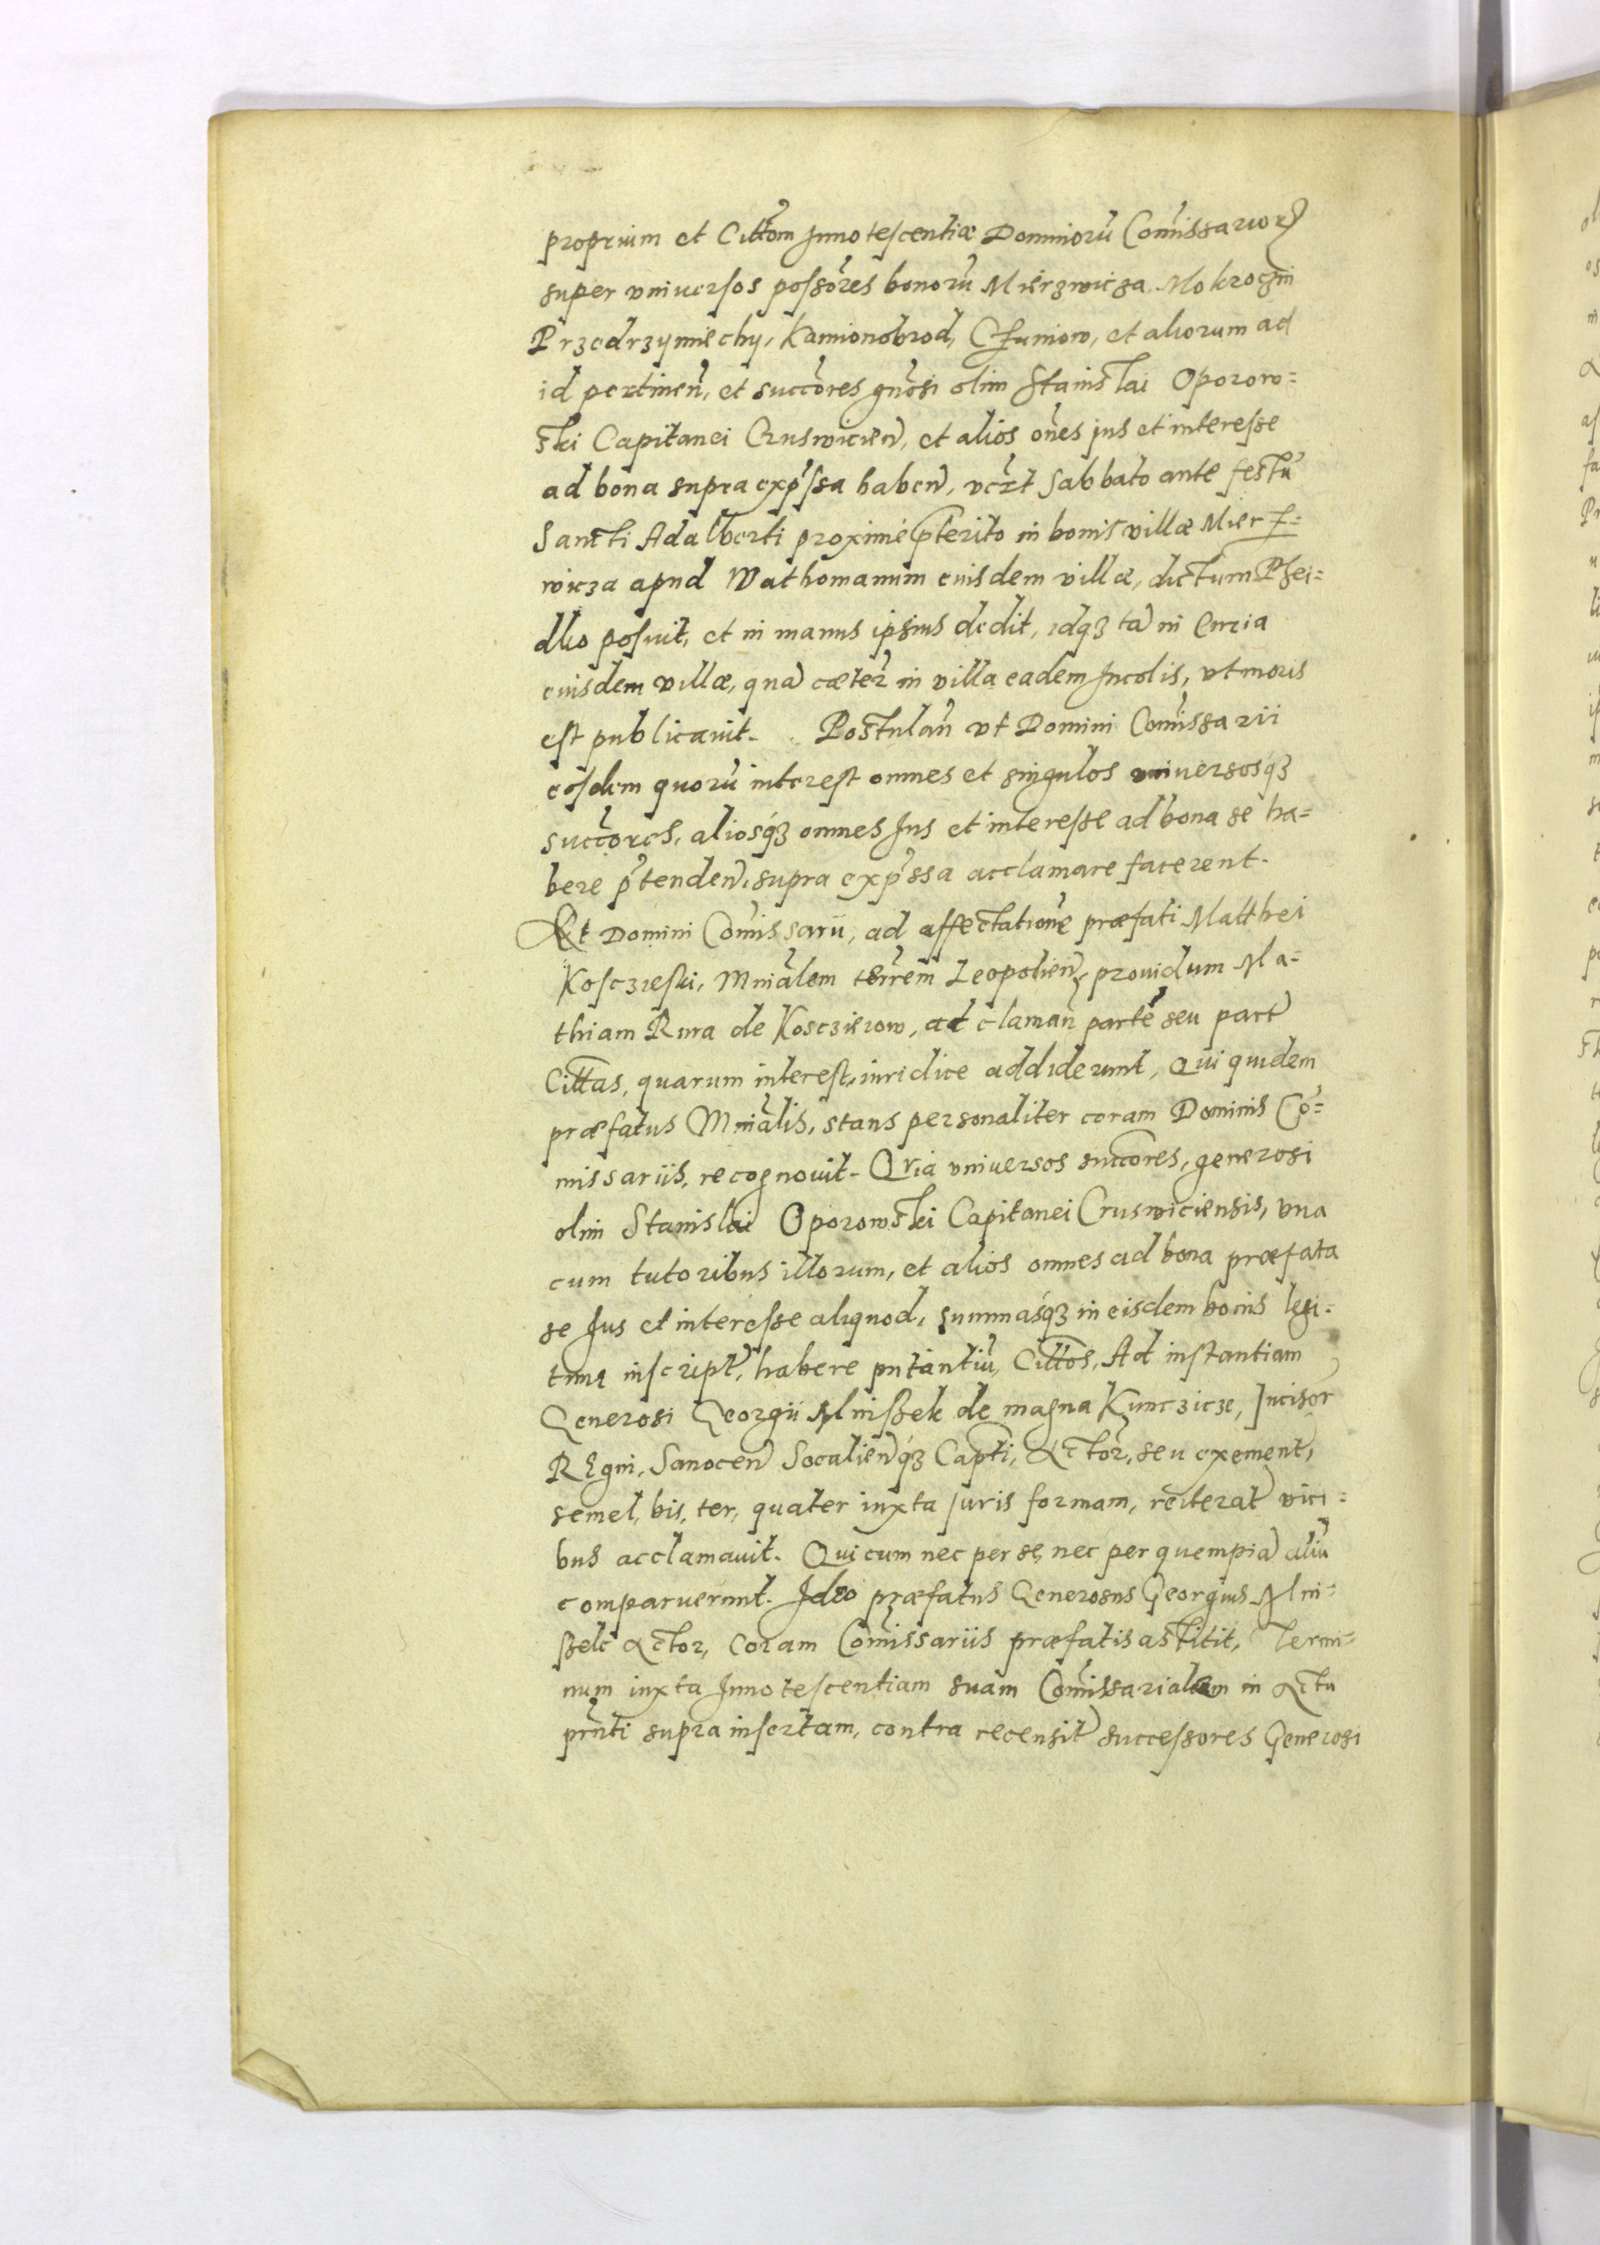 proprium et Cittom Innotescentiæ Dominorũ Comissarior
super vniuersos possores bonorũ Mierzwicza Mokroczin
Przedrzymiechy, Kamionobrod, Czuniow, et aliorum ad
id pertineñ, et succores gnosi olim Stanislai Oporow=
ski Capitanei Cruswicień, et alios ones ius et interesse
ad bona supra expssa habeñ, vczt Sabbato ante festũ
Sancti Adalberti proxime pterito in bonis villæ Mierz=
wicza apud Wathomanum eiusdem villæ, dictum Psei=
dlio posuit, et in manus ipsius dedit, idq3 tã in Curia
eiusdem villæ, quã cæter in villa eadem Incolis, vt moris
est publicauit. Postulañ vt Domini Comissarii
eosdem quorũ interest omnes et singulos vniuersosq3
succores, aliosq3 omnes Jus et interesse ad bona se ha=
bere ptendeñ, supra expssa acclamare facerent.
Et Domini Comissarii, ad affectatione præfati Matthei
Kosczieski, Mnialem terrem Leopolień, prouidum Ma=
thiam Rura de Kosczierow, ad clamañ partẽ seu part
Cittas, quarum interest, iuridice addiderunt, Qui quidem
præfatus Mnialis, stans personaliter coram Dominis Co=
missariis, recognouit. Quia vniuersos succores, generosi
olim Stanislai Oporowski Capitanei Cruswiciensis, vna
cum tutoribus illorum, et alios omnes ad bona præfata
se Jus et interesse aliquod, summasq3 in eisdem bonis legi=
time inscript, habere putantiũ, Cittos, Ad instantiam
Generosi Georgii Mniszek de magna Kunczicze, Incisor
Regni, Sanoceñ Socalieñq3 Capti, Actor, seu exement,
semel, bis, ter, quater iuxta juris formam, reiterat vici=
bus acclamauit. Qui cum nec per se, nec per quempiã aliũ
comparuerunt. Ideo præfatus Generosus Georgius Mni=
szek Actor, coram Comissariis præfatis astitit, Termi=
num iuxta Innotescentiam suam Comissarialem in Actu
prnti supra insertam, contra recensit successores Generosi